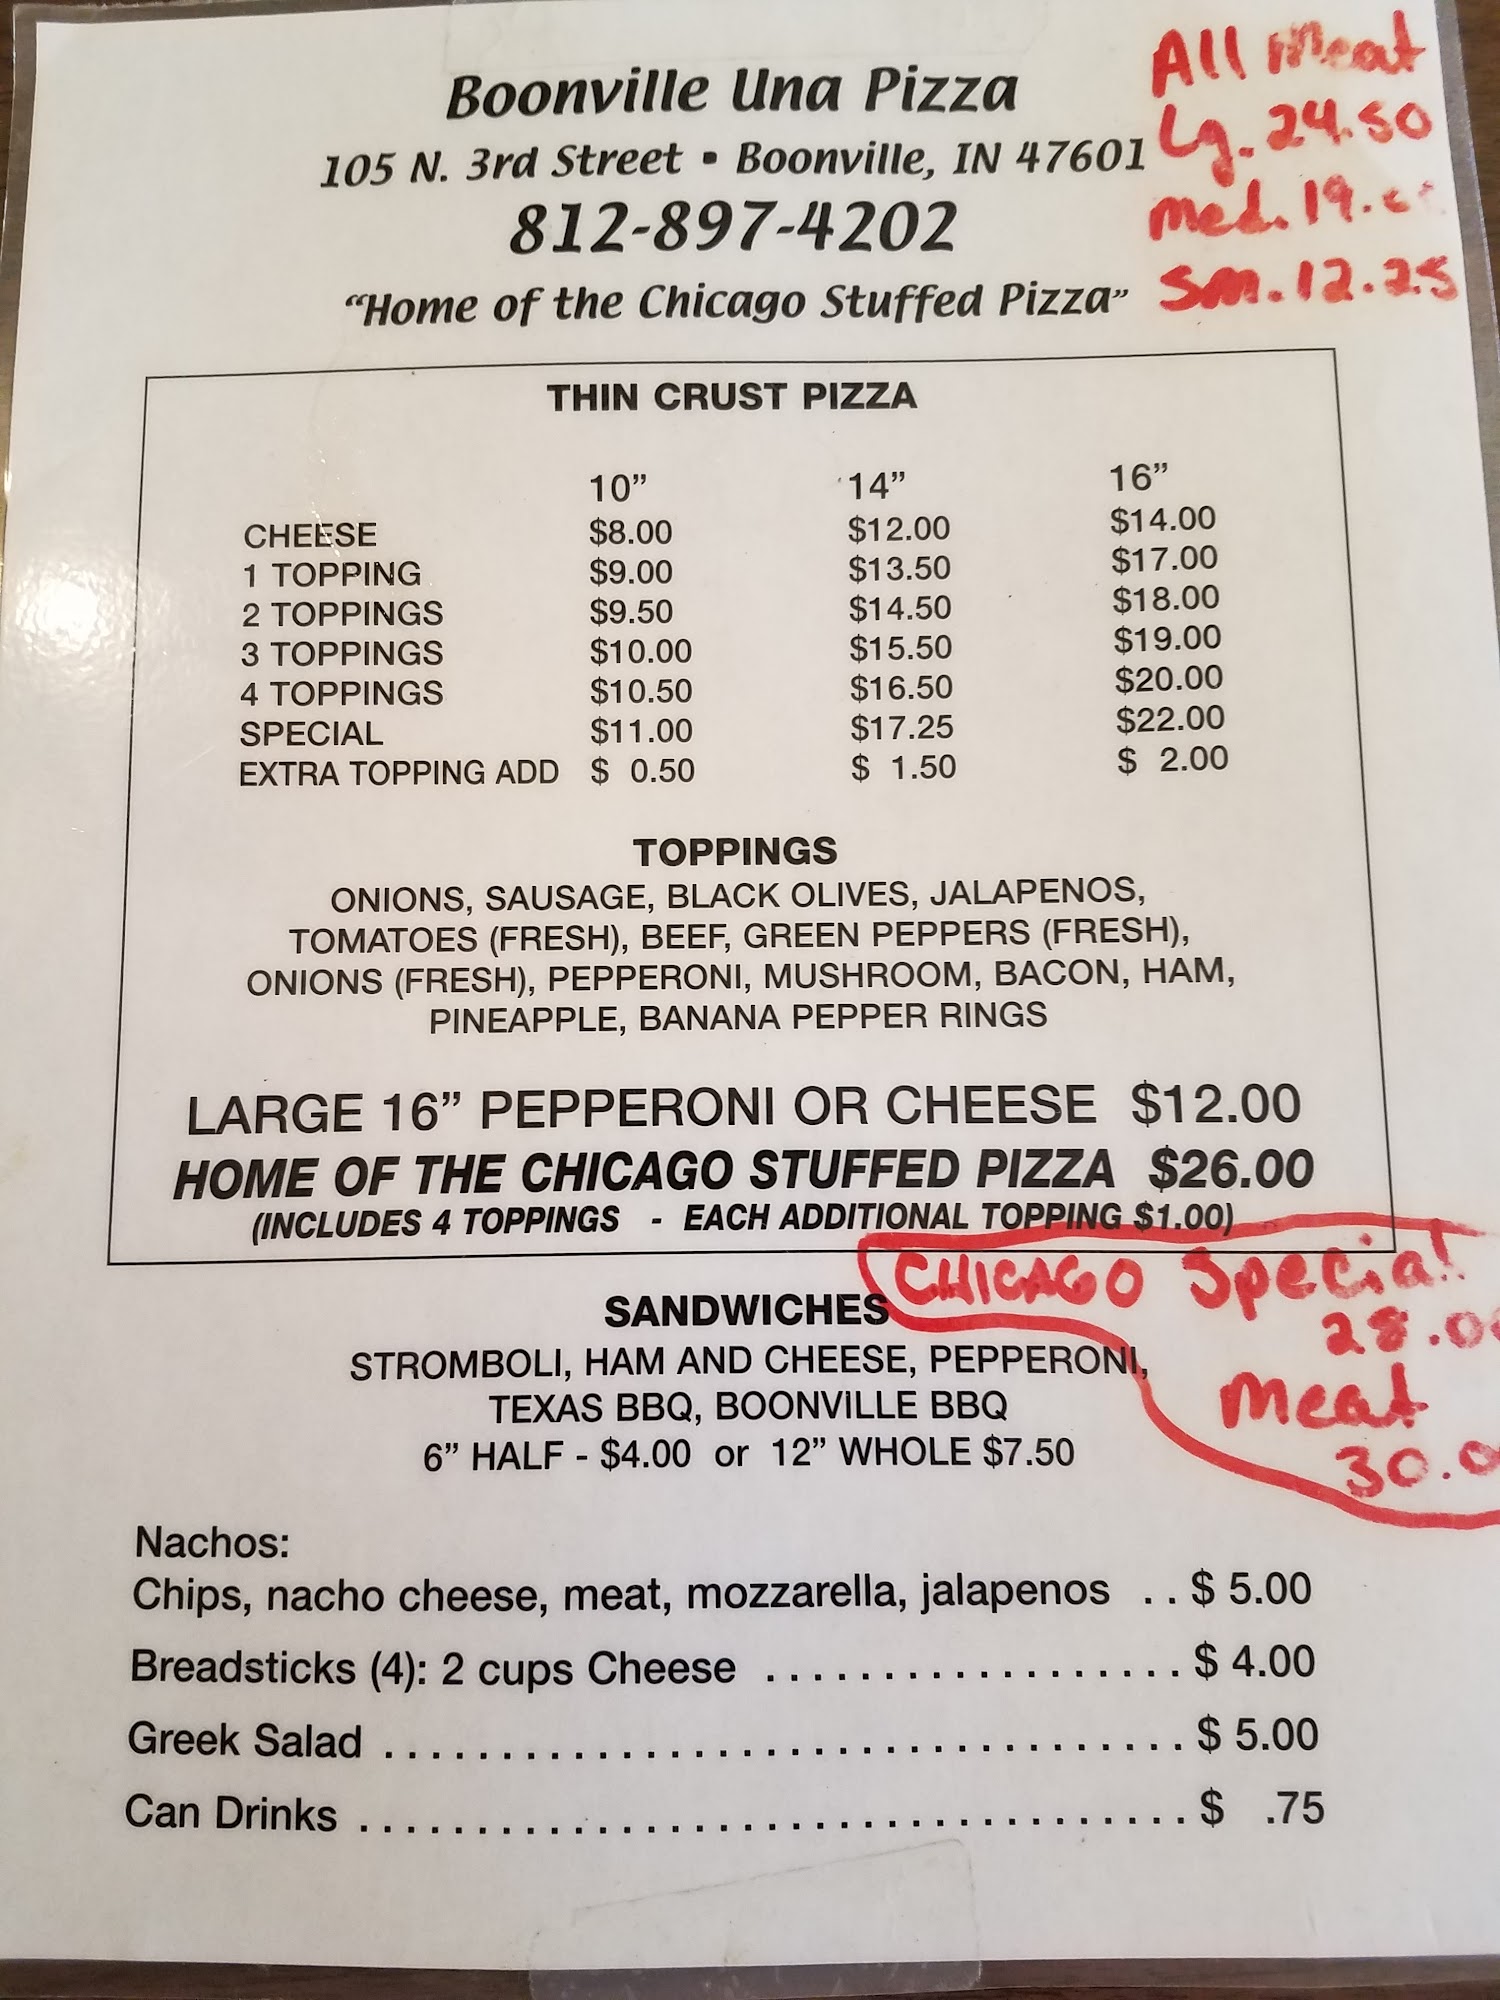 Boonville Una Pizza
105 N. 3rd Street • Boonville, IN 47601
812-897-4202
"Home of the Chicago Stuffed Pizza"
All Meat
Lg. 24.50
Med. 19.
Sm. 12.25
THIN CRUST PIZZA
10" 14" 16"
CHEESE $8.00 $12.00 $14.00
1 TOPPING $9.00 $13.50 $17.00
2 TOPPINGS $9.50 $14.50 $18.00
3 TOPPINGS $10.00 $15.50 $19.00
4 TOPPINGS $10.50 $16.50 $20.00
SPECIAL $11.00 $17.25 $22.00
EXTRA TOPPING ADD $ 0.50 $ 1.50 $ 2.00
TOPPINGS
ONIONS, SAUSAGE, BLACK OLIVES, JALAPENOS,
TOMATOES (FRESH), BEEF, GREEN PEPPERS (FRESH),
ONIONS (FRESH), PEPPERONI, MUSHROOM, BACON, HAM,
PINEAPPLE, BANANA PEPPER RINGS
LARGE 16" PEPPERONI OR CHEESE $12.00
HOME OF THE CHICAGO STUFFED PIZZA $26.00
(INCLUDES 4 TOPPINGS - EACH ADDITIONAL TOPPING $1.00)
CHICAGO Special
28.0
Meat
30.0
SANDWICHES
STROMBOLI, HAM AND CHEESE, PEPPERONI,
TEXAS BBQ, BOONVILLE BBQ
6" HALF - $4.00 or 12" WHOLE $7.50
Nachos:
Chips, nacho cheese, meat, mozzarella, jalapenos . . $ 5.00
Breadsticks (4): 2 cups Cheese . . . . . . . . . . . . . . . . . . $ 4.00
Greek Salad . . . . . . . . . . . . . . . . . . . . . . . . . . . . . . $ 5.00
Can Drinks . . . . . . . . . . . . . . . . . . . . . . . . . . . . . . . $ .75